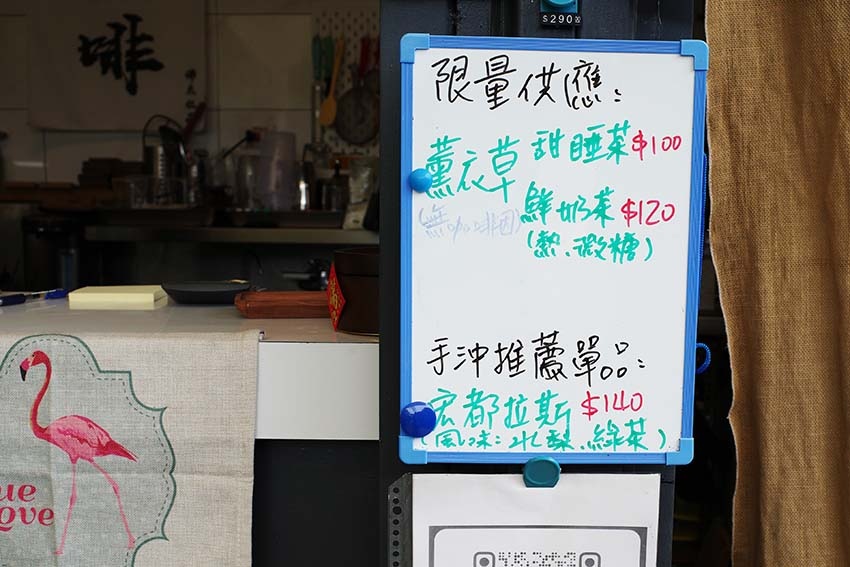 $290
啡
限量供應:
薰衣草 甜睡茶 $100
(無咖啡因) 鮮奶茶 $120
(熱、微糖)
手沖推薦單品:
宏都拉斯 $140
(風味:水梨、綠茶)
ue
Love